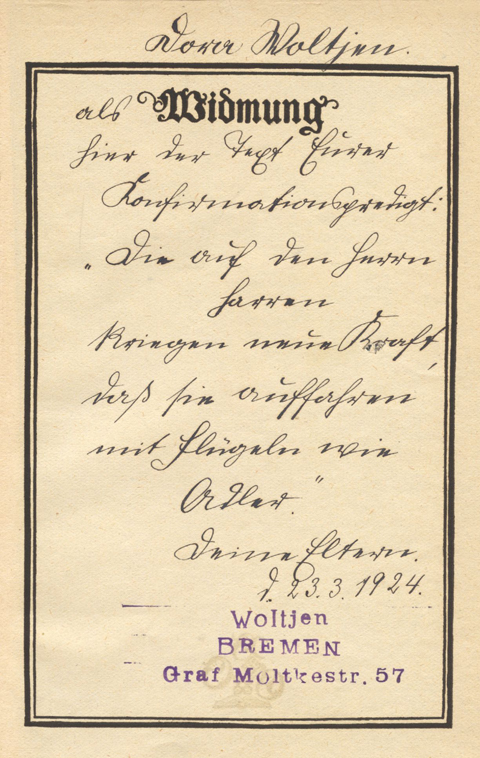 Dora Woltjen.
als Widmung
hier der Text Eurer
Konfirmationspredigt:
„Die auf den Herrn
harren
kriegen neue Kraft,
daß sie auffahren
mit Flügeln wie
Adler."
Deine Eltern.
d. 23.3.1924.
Woltjen
BREMEN
Graf Moltkestr. 57